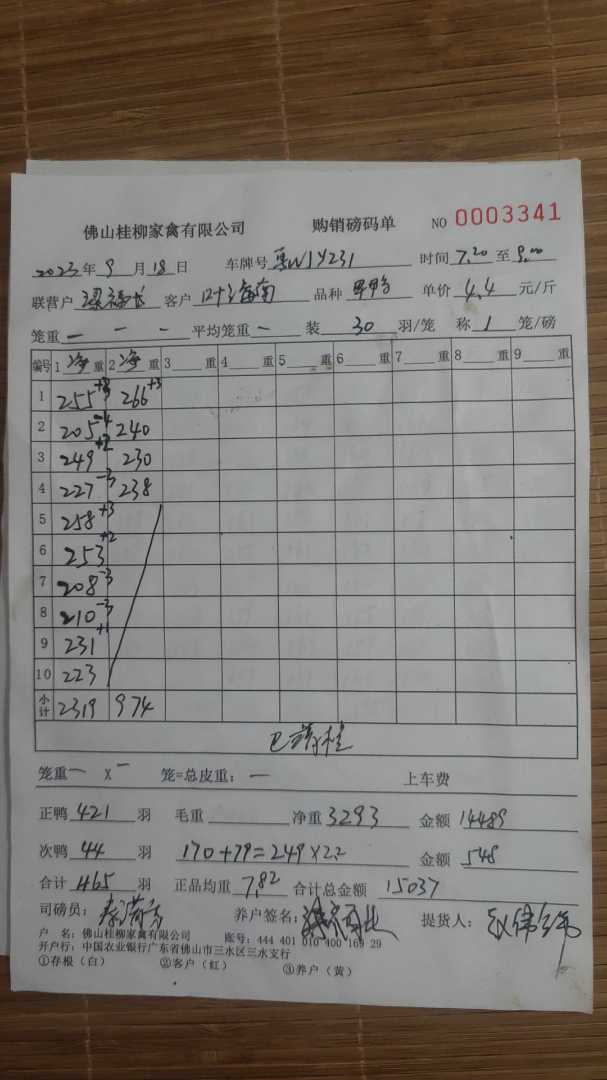 佛山桂柳家禽有限公司 购销磅码单 NO 0003341
2023年 9 月 18 日 车牌号 时间 7.20 至 9.00
联营户 客户 品种 单价 4.4 元/斤
笼重 — — — 平均笼重 — 装 30 羽/笼 称 1 笼/磅
编号 1 净 重 2 净 重 3 重 4 重 5 重 6 重 7 重 8 重 9 重
1 255 +3 266 +3
2 205 -4 240
3 249 +2 230
4 227 -3 238
5 258 +3
6 253 +2
7 208 -3
8 210 -3
9 231 +1
10 223
小计 2319 974
笼重 — X — 笼=总皮重： — 上车费
正鸭 421 羽 毛重 净重 3293 金额 14489
次鸭 44 羽 170+79=249×2.2 金额 548
合计 465 羽 正品均重 7.82 合计总金额 15037
司磅员： 养户签名： 提货人：
户 名：佛山桂柳家禽有限公司 账号：444 401 010 400 169 29
开户行：中国农业银行广东省佛山市三水区三水支行
①存根（白） ②客户（红） ③养户（黄）